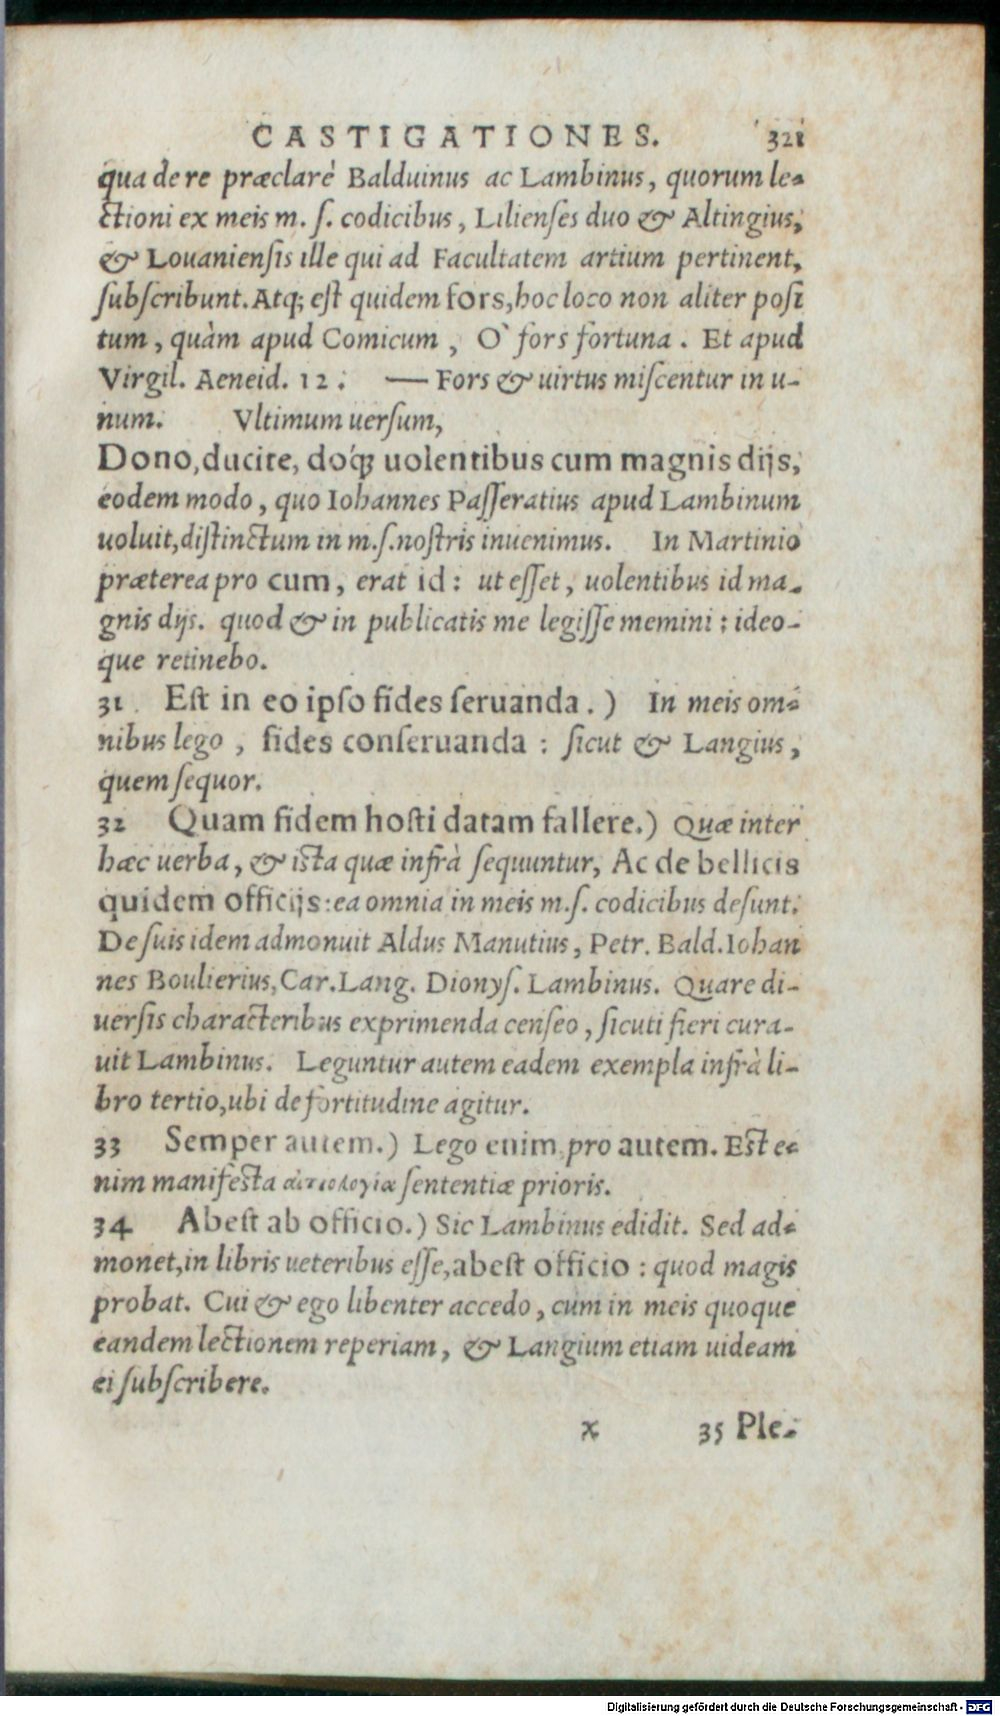 CASTIGATIONES. 321
qua de re præclarè Balduinus ac Lambinus, quorum le-
ctioni ex meis m. ſ. codicibus, Lilienſes duo & Altingius,
& Louanienſis ille qui ad Facultatem artium pertinent,
ſubſcribunt. Atq; eſt quidem fors, hoc loco non aliter poſi
tum, quàm apud Comicum, O` fors fortuna. Et apud
Virgil. Aeneid. 12. — Fors & uirtus miſcentur in u-
num. Vltimum uerſum,
Dono, ducite, doq́; uolentibus cum magnis dijs,
eodem modo, quo Iohannes Paſſeratius apud Lambinum
uoluit, diſtinctum in m.ſ. noſtris inuenimus. In Martinio
præterea pro cum, erat id: ut eſſet, uolentibus id ma-
gnis dijs. quod & in publicatis me legiſſe memini: ideo-
que retinebo.
31. Eſt in eo ipſo fides ſeruanda.) In meis om-
nibus lego, fides conſeruanda: ſicut & Langius,
quem ſequor.
32 Quam fidem hoſti datam fallere.) Quæ inter
hæc uerba, & iſta quæ infrà ſequuntur, Ac de bellicis
quidem officijs: ea omnia in meis m.ſ. codicibus deſunt.
De ſuis idem admonuit Aldus Manutius, Petr. Bald. Iohan
nes Boulierius, Car. Lang. Dionyſ. Lambinus. Quare di-
uerſis characteribus exprimenda cenſeo, ſicuti fieri cura-
uit Lambinus. Leguntur autem eadem exempla infrà li-
bro tertio, ubi de fortitudine agitur.
33 Semper autem.) Lego enim pro autem. Eſt e-
nim manifeſta αἰτιολογία ſententiæ prioris.
34 Abeſt ab officio.) Sic Lambinus edidit. Sed ad-
monet, in libris ueteribus eſſe, abeſt officio: quod magis
probat. Cui & ego libenter accedo, cum in meis quoque
eandem lectionem reperiam, & Langium etiam uideam
ei ſubſcribere.
x 35 Ple-
Digitalisierung gefördert durch die Deutsche Forschungsgemeinschaft - DFG